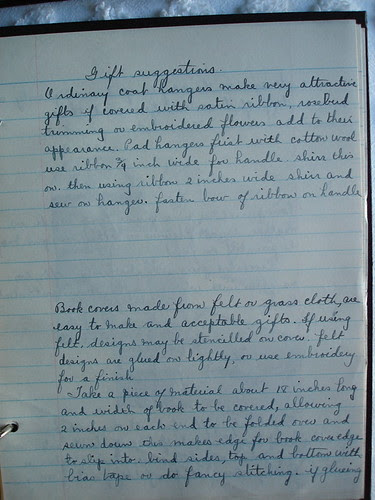 Gift suggestions.
Ordinary coat hangers make very attractive
gifts if covered with satin ribbon, rosebud
trimming or embroidered flowers add to their
appearance. Pad hangers first with cotton wool
use ribbon 3/4 inch wide for handle. shirr this
on. then using ribbon 2 inches wide shirr and
sew on hanger. fasten bow of ribbon on handle
Book covers made from felt or grass cloth, are
easy to make and acceptable gifts. If using
felt. designs may be stencilled on cover. felt
designs are glued on lightly, or use embroidery
for a finish
Take a piece of material about 18 inches long
and width of book to be covered, allowing
2 inches on each end to be folded over and
sewn down. this makes edge for book cover edge
to slip into. bind sides, top and bottom with
bias tape or do fancy stitching. if glueing